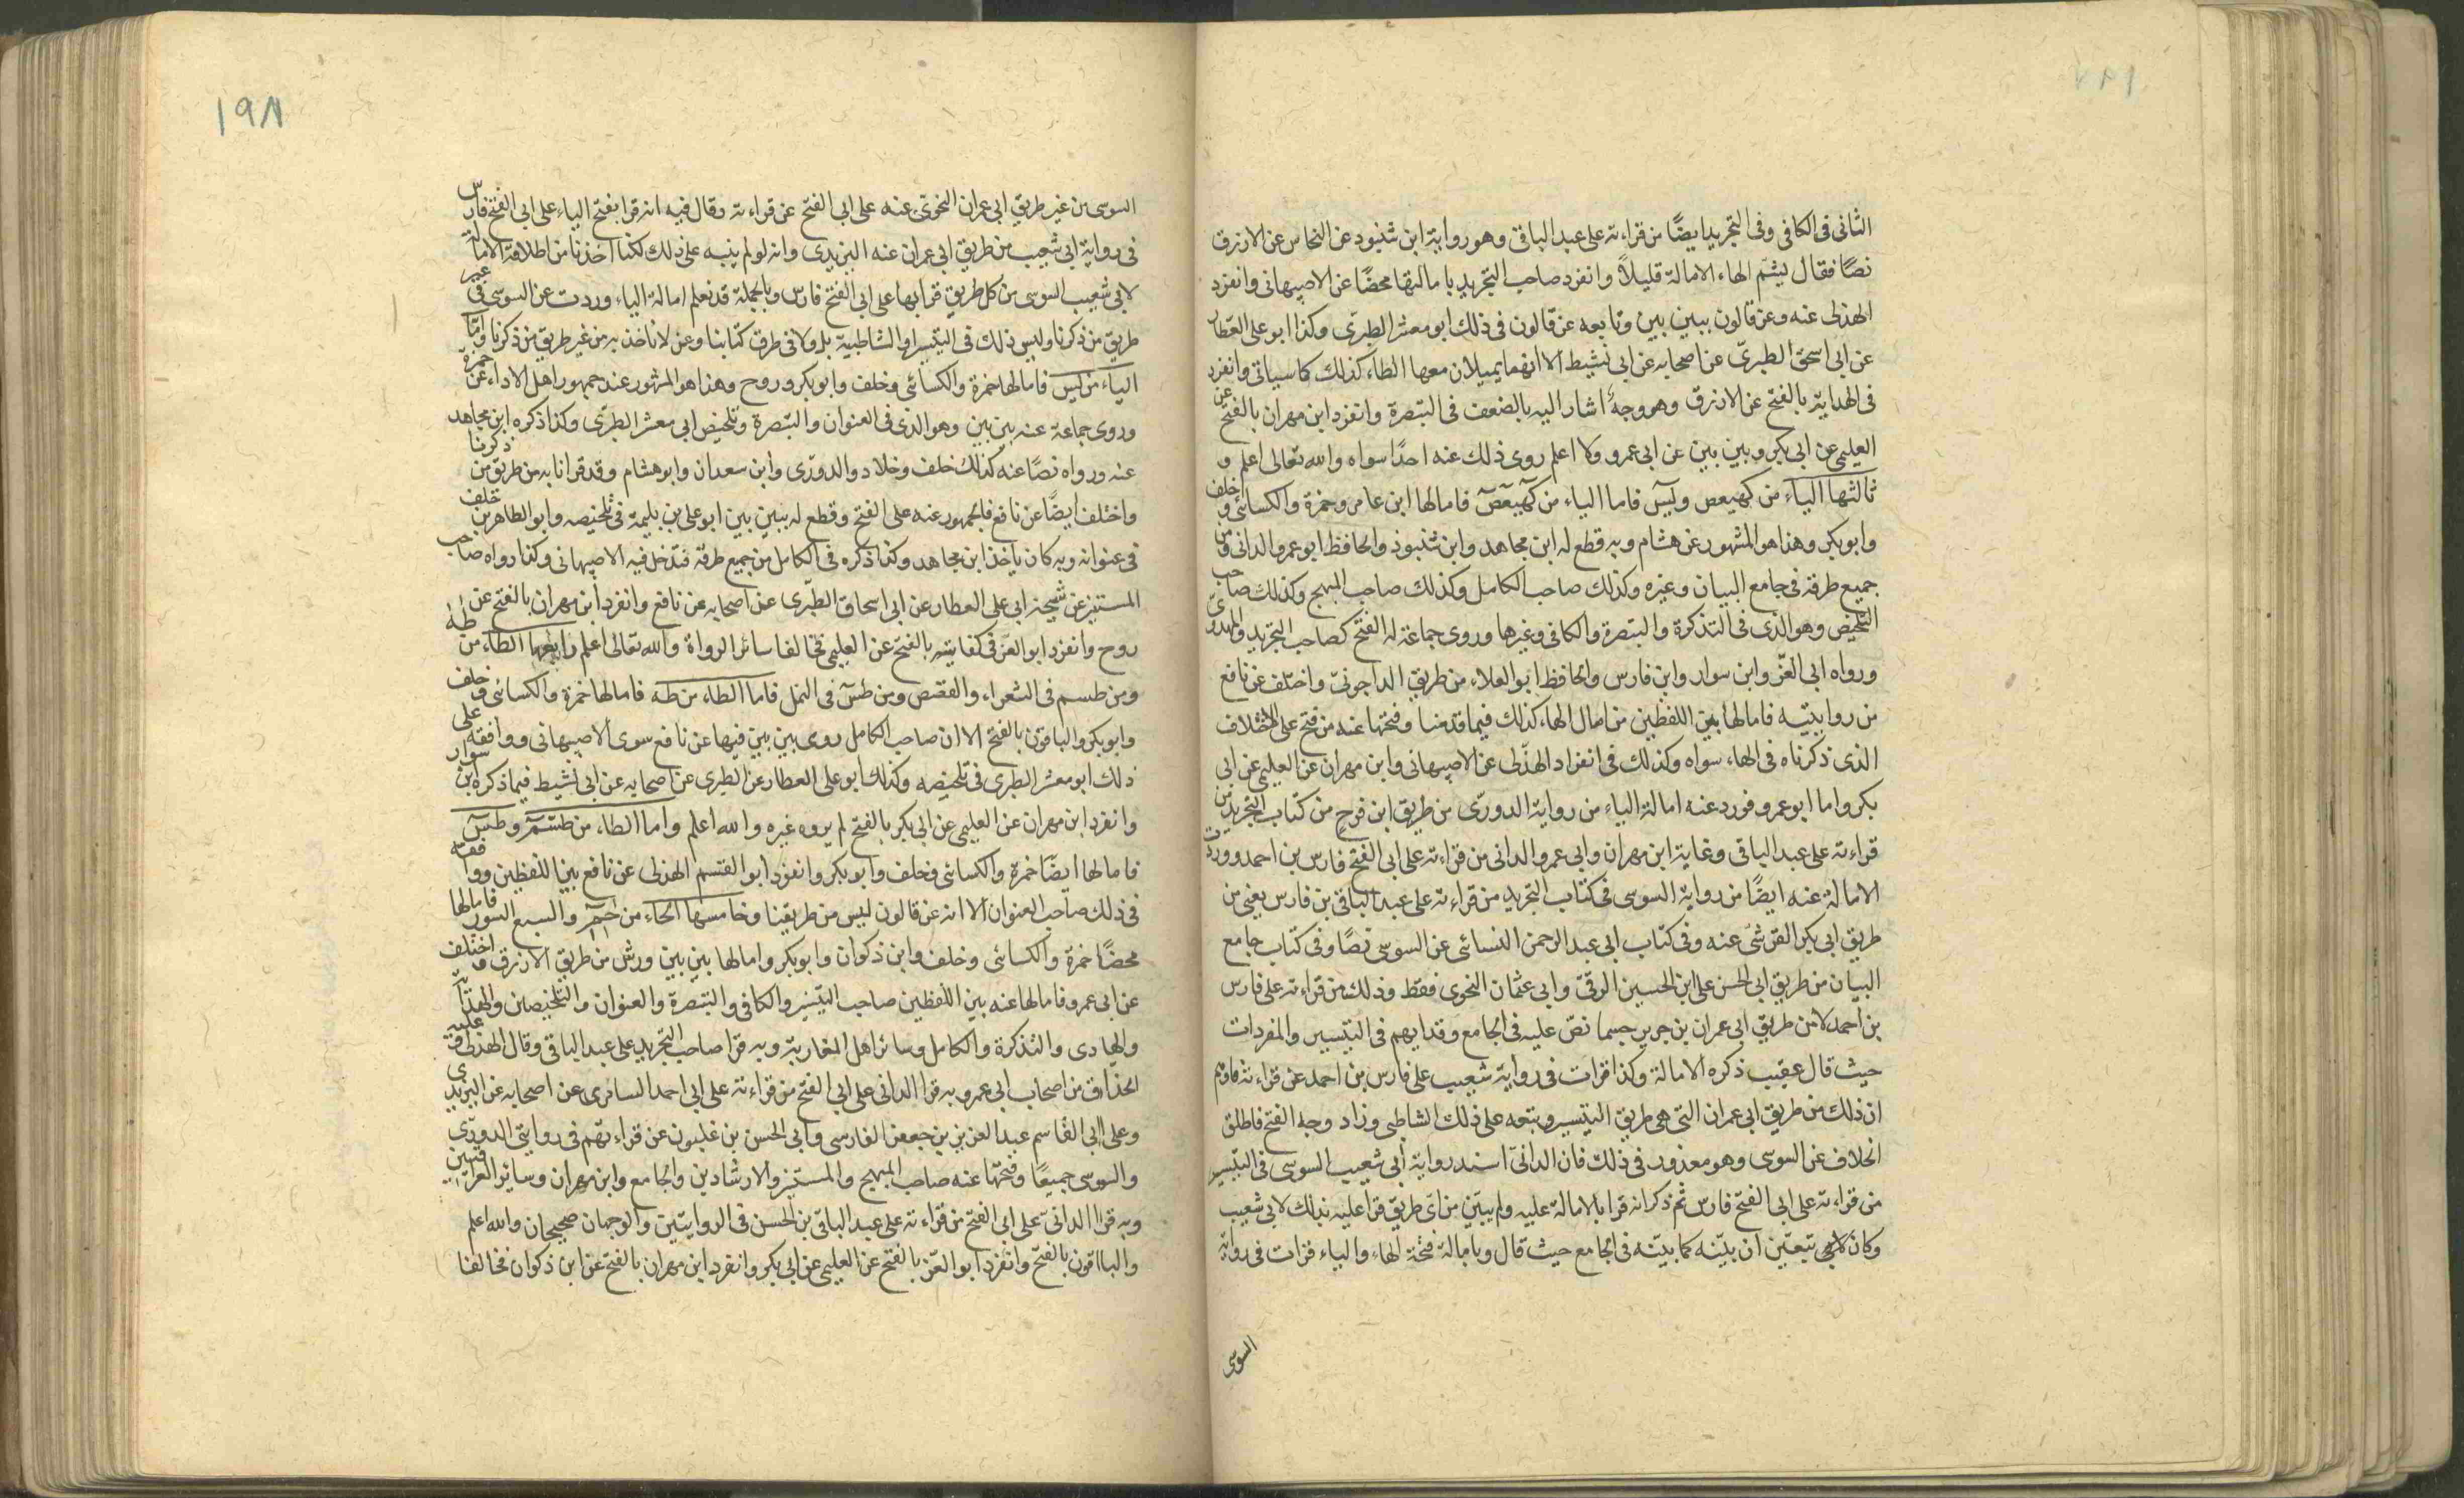 الثانى فى الكافى وفى التجريد ايضًا من قراءته على عبد الباقى وهو رواية ابن شنبوذ عن النحاس عن الازرق
نصًا فقال يشم الهاء الامالة قليلاً وانفرد صاحب التجريد بامالتها محضًا عن الاصبهانى وانفرد
الهذلى عنه وعن قالون ببين بين وتابعه عن قالون فى ذلك ابو معشر الطبرى وكذا ابو على العطار
عن ابى اسحق الطبرى عن اصحابه عن ابى نشيط الا انهما يميلان معها الطاء كذلك كما سياتى وانفرد
فى الهداية بالفتح عن الازرق وهو وجه اشار اليه بالضعف فى التبصرة وانفرد ابن مهران بالفتح عن
العليمى عن ابى بكر وبين بين عن ابى عمرو ولا اعلم روى ذلك عنه احدًا سواه والله تعالى اعلم و
ثالثها الياء من كهيعص ويس فاما الياء من كهيعص فامالها ابن عامر وحمزة والكسائى وخلف
وابو بكر وهذا هو المشهور عن هشام وبه قطع له ابن مجاهد وابن شنبوذ والحافظ ابو عمرو الدانى من
جميع طرقه فى جامع البيان وغيره وكذلك صاحب الكامل وكذلك صاحب المبهج وكذلك صاحب
التلخيص وهو الذى فى التذكرة والتبصرة والكافى وغيرها وروى جماعة له الفتح كصاحب التجريد والمهدوى
ورواه ابى العز وابن سوار وابن فارس والحافظ ابو العلاء من طريق الداجونى واختلف عن نافع
من روايتيه فامالها بين اللفظين من امال الهاء كذلك فيما قدمنا وفتحها عنه من فتح على الاختلاف
الذى ذكرناه فى الهاء سواه وكذلك فى انفراد الهذلى عن الاصبهانى وابن مهران عن العليمى عن ابى
بكر واما ابو عمرو فورد عنه امالة الياء من رواية الدورى من طريق ابن فرح من كتاب التجريد من
قراءته على عبد الباقى وغاية ابن مهران وابى عمرو الدانى من قراءته على ابى الفتح فارس بن احمد ووردت
الامالة عنه ايضًا من رواية السوسى فى كتاب التجريد من قراءته على عبد الباقى بن فارس يعنى من
طريق ابى بكر القرشى عنه وفى كتاب ابى عبد الرحمن النسائى عن السوسى نصًا وفى كتاب جامع
البيان من طريق ابى الحسن على ابن الحسين الرقى وابى عثمان النحوى فقط وذلك من قراءته على فارس
بن احمد لا من طريق ابى عمران بن جرير حسبما نص عليه فى الجامع وقد ابهم فى التيسير والمفردات
حيث قال عقيب ذكره الامالة وكذا قرات فى رواية شعيب على فارس بن احمد عن قراءته فاوهم
ان ذلك من طريق ابى عمران التى هى طريق التيسير وتبعه على ذلك الشاطبى وزاد وجه الفتح فاطلق
الخلاف عن السوسى وهو معذور فى ذلك فان الدانى اسند رواية ابى شعيب السوسى فى التيسير
من قراءته على ابى الفتح فارس ثم ذكر انه قرا بالامالة عليه ولم يبين من اى طريق قرا عليه بذلك لابى شعيب
وكان يتعين ان يبينه كما بينه فى الجامع حيث قال وبامالة فتحة الهاء والياء قرات فى رواية
السوسى
١٩٨
السوسى من غير طريق ابى عمران النحوى عنه على ابى الفتح عن قراءته وقال فيه انه قرا بفتح الياء على ابى الفتح فارس
فى رواية ابى شعيب من طريق ابى عمران عنه اليزيدى وانه لو لم ينبه على ذلك لكنا اخذنا من اطلاقه الامالة
لابى شعيب السوسى من كل طريق قرا بها على ابى الفتح فارس وبالجملة قد نعلم امالة الياء وردت عن السوسى فى غير
طريق من ذكرنا وليس ذلك فى التيسير او الشاطبية بل ولا فى طرق كتابنا ونحن لا ناخذ به من غير طريق من ذكرنا واما
الياء من يس فامالها حمزة والكسائى وخلف وابو بكر وروح وهذا هو المشهور عند جمهور اهل الاداء عن حمزة
وروى جماعة عنه بين بين وهو الذى فى العنوان والتبصرة وتلخيص ابى معشر الطبرى وكذا ذكره ابن مجاهد
عنه ورواه نصًا عنه كذلك خلف وخلاد والدورى وابن سعدان وابو هشام وقد قرانا به من طريق من ذكرنا
واختلف ايضًا عن نافع فالجمهور عنه على الفتح وقطع له ببين بين ابو على بن بليمة فى تلخيصه وابو الطاهر بن خلف
فى عنوانه وبه كان ياخذ ابن مجاهد وكذا ذكره فى الكامل من جميع طرقه فتدخل فيه الاصبهانى وكذا رواه صاحب
المستنير عن شيخه ابى على العطار عن ابى اسحاق الطبرى عن اصحابه عن نافع وانفرد ابن مهران بالفتح عن
روح وانفرد ابو العز فى كفايته بالفتح عن العليمى فخالفا سائر الرواة والله تعالى اعلم رابعها الطاء من طه
ومن طسم فى الشعراء والقصص ومن طس فى النمل فاما الطاء من طه فامالها حمزة والكسائى وخلف
وابو بكر والباقون بالفتح الا ان صاحب الكامل روى بين بين فيها عن نافع سوى الاصبهانى ووافقه على
ذلك ابو معشر الطبرى فى تلخيصه وكذلك ابو على العطار عن الطبرى عن اصحابه عن ابى نشيط فيما ذكره ابن سوار
وانفرد ابن مهران عن العليمى عن ابى بكر بالفتح لم يروه غيره والله اعلم واما الطاء من طسم وطس
فامالها ايضًا حمزة والكسائى وخلف وابو بكر وانفرد ابو القسم الهذلى عن نافع بين اللفظين ووافقه
فى ذلك صاحب العنوان الا انه عن قالون ليس من طريقنا وخامسها الحاء من حم والسبع السور فامالها
محضًا حمزة والكسائى وخلف وابن ذكوان وابو بكر وامالها بين بين ورش من طريق الازرق واختلف
عن ابى عمرو فامالها عنه بين اللفظين صاحب التيسير والكافى والتبصرة والعنوان والتلخيصين والهداية
والهادى والتذكرة والكامل وسائر اهل المغاربة وبه قرا صاحب التجريد على عبد الباقى وقال الهذلى وعليه
الحذاق من اصحاب ابى عمرو وبه قرا الدانى على ابى الفتح من قراءته على ابى احمد السامرى عن اصحابه عن اليزيدى
وعلى ابى القاسم عبد العزيز بن جعفر الفارسى وابى الحسن بن غلبون عن قراءتهم فى روايتى الدورى
والسوسى جميعًا وفتحها عنه صاحب المبهج والمستنير والارشادين والجامع وابن مهران وسائر العراقيين
وبه قرا الدانى على ابى الفتح من قراءته على عبد الباقى بن الحسن فى الروايتين والوجهان صحيحان والله اعلم
والباقون بالفتح وانفرد ابو العز بالفتح عن العليمى عن ابى بكر وانفرد ابن مهران بالفتح عن ابن ذكوان فخالفا